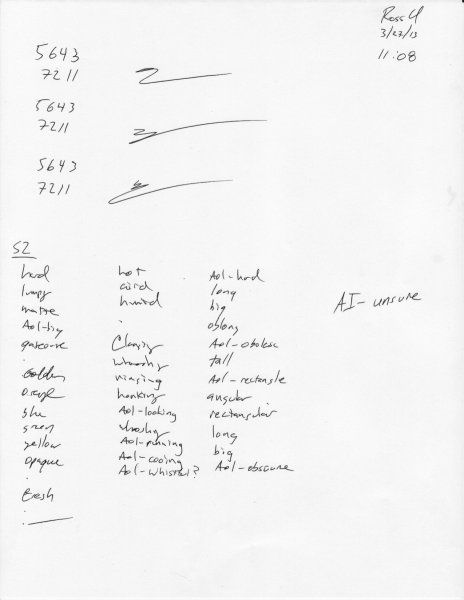 Ross
3/27/13
11:08
5643
7211
5643
7211
5643
7211
S2
hard
lumpy
matte
Aol-big
orange
blue
green
yellow
opaque
fresh
hot
humid
Clanging
whooshy
ringing
honking
Aol-looking
Aol-cooing
Aol-whistle?
Aol-hard
long
big
oblong
Aol-obelesc
tall
Aol-rectangle
angular
rectangular
long
big
Aol-obscure
AI-unsure